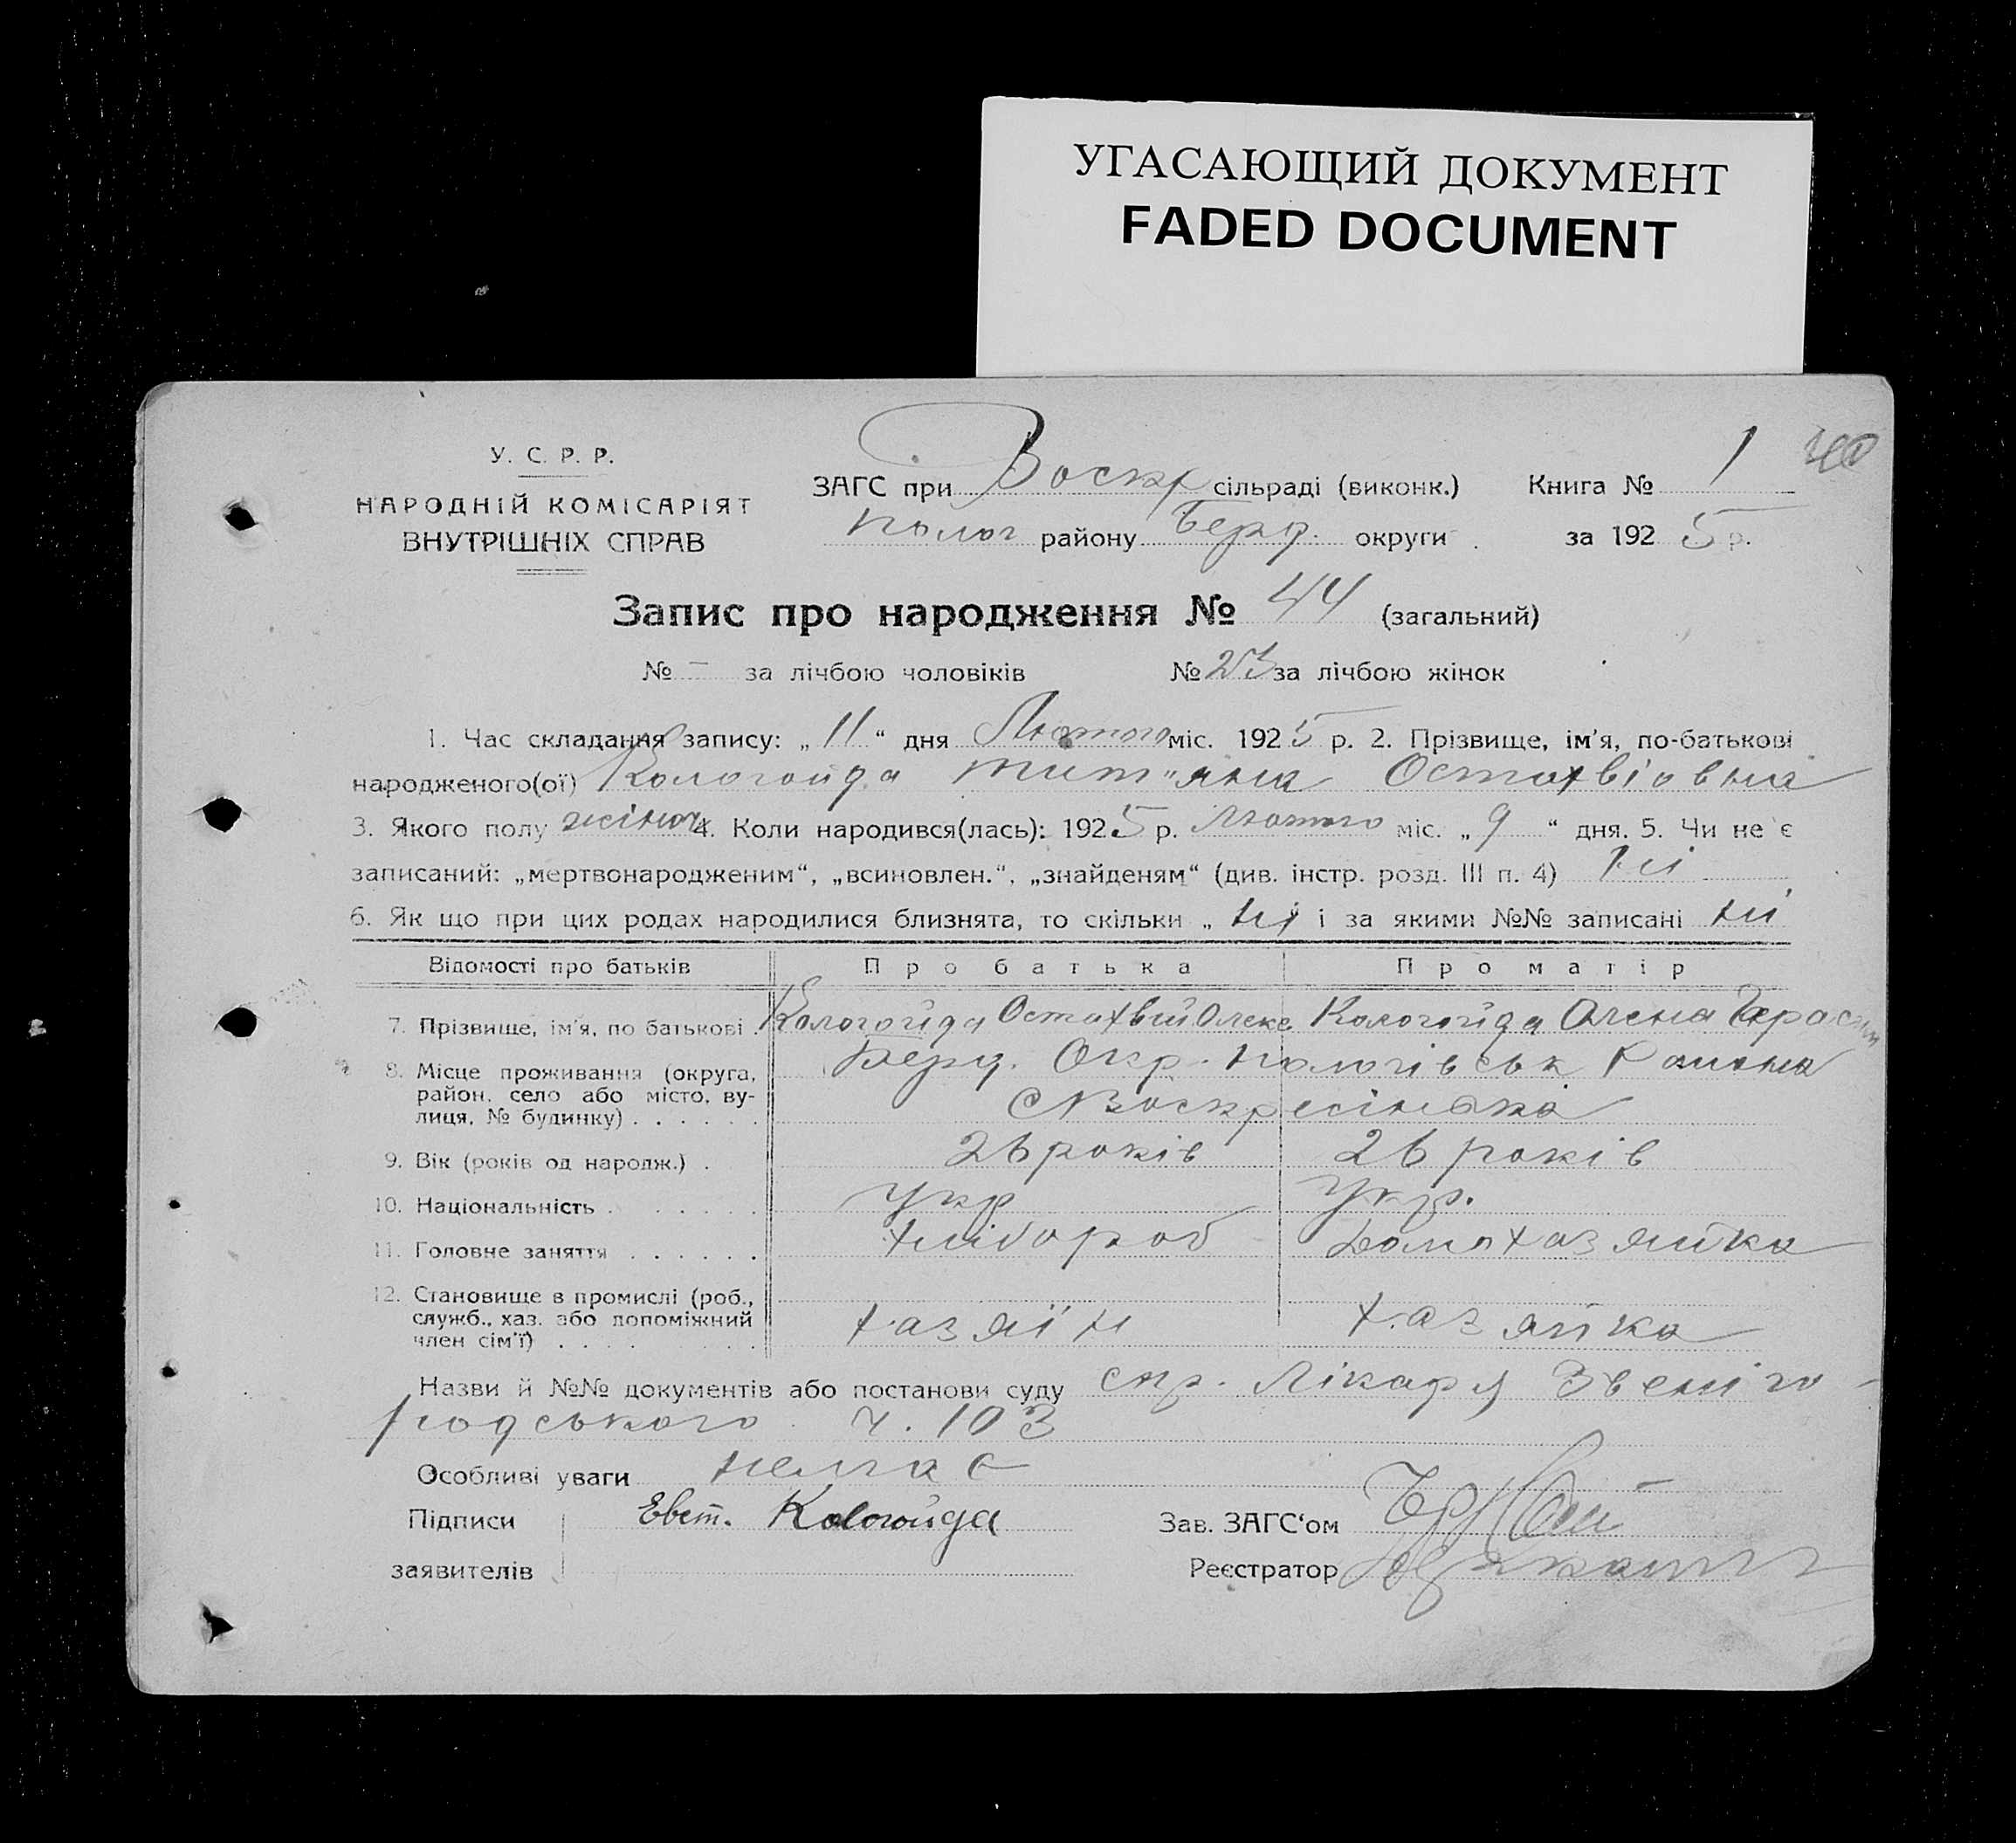 УГАСАЮЩИЙ ДОКУМЕНТ
FADED DOCUMENT
У. С. Р. Р.
НАРОДНІЙ КОМІСАРІЯТ
ВНУТРІШНІХ СПРАВ
ЗАГС при Воскр сільраді (виконк.) Книга № 1 40
Полог району Берд. округи за 1925 р.
Запис про народження № 44 (загальний)
№ – за лічбою чоловіків № 23 за лічбою жінок
1. Час складання запису: „ 11 “ дня Лютого міс. 1925 р. 2. Прізвище, ім'я, по-батькові
народженого(ої) Кологойда Тит"яна Остахвіовна
3. Якого полу жіноч 4. Коли народився(лась): 1925 р. Лютого міс. „ 9 “ дня. 5. Чи не є
записаний: „мертвонародженим“, „всиновлен.“, „знайденям“ (див. інстр. розд. III п. 4) ні
6. Як що при цих родах народилися близнята, то скільки „ ні і за якими №№ записані ні
Відомості про батьків Про батька Про матір
7. Прізвище, ім'я, по батькові . Кологойда Остахвій Олекс Кологойда Олена Герасим
8. Місце проживання (округа, район, село або місто, ву-
лиця, № будинку) . . . . . . Берд. Окр. Пологівськ Району
С Воскресінька
9. Вік (років од народж.) . 26 років 26 років
10. Національність . . . . . . Укр Укр.
11. Головне заняття . . . . . . хлібороб Домохазяйка
12. Становище в промислі (роб.,
служб., хаз. або допоміжний
член сім'ї) . . . . хазяїн хазяйка
Назви й №№ документів або постанови суду спр. Лікаря Звеніго-
родського ч. 103
Особливі уваги немає
Підписи Евст. Кологойда Зав. ЗАГС‘ом
заявителів Реєстратор